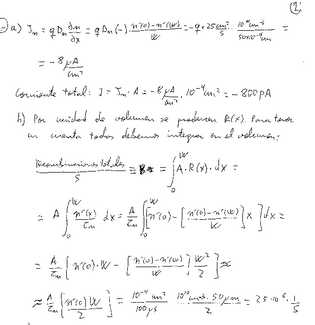 (2
a) Jn = q Dn ∂n/∂x = q Dn (-) (n'(0) - n'(W))/W = -q · 25 cm²/s · 10¹⁰ cm⁻³/(50×10⁻⁴ cm) =
= -8 μA/cm²
Corriente total: I = Jn · A = -8 μA/cm² · 10⁻⁴ cm² = -800 pA
b) Por unidad de volumen se producen R(x). Para tener
en cuenta todos debemos integrar en el volumen:
Recombinaciones totales/s = ∫₀^W A · R(x) · dx =
= A ∫₀^W n'(x)/τn dx = A/τn ∫₀^W [n'(0) - [(n'(0) - n'(W))/W] x] dx =
= A/τn [n'(0) · W - [(n'(0) - n'(W))/W] W²/2] ≈
≈ A/τn [n'(0) W/2] = 10⁻⁴ cm²/100 μs · 50 μm/2 = 25 · 10⁶ · 1/s